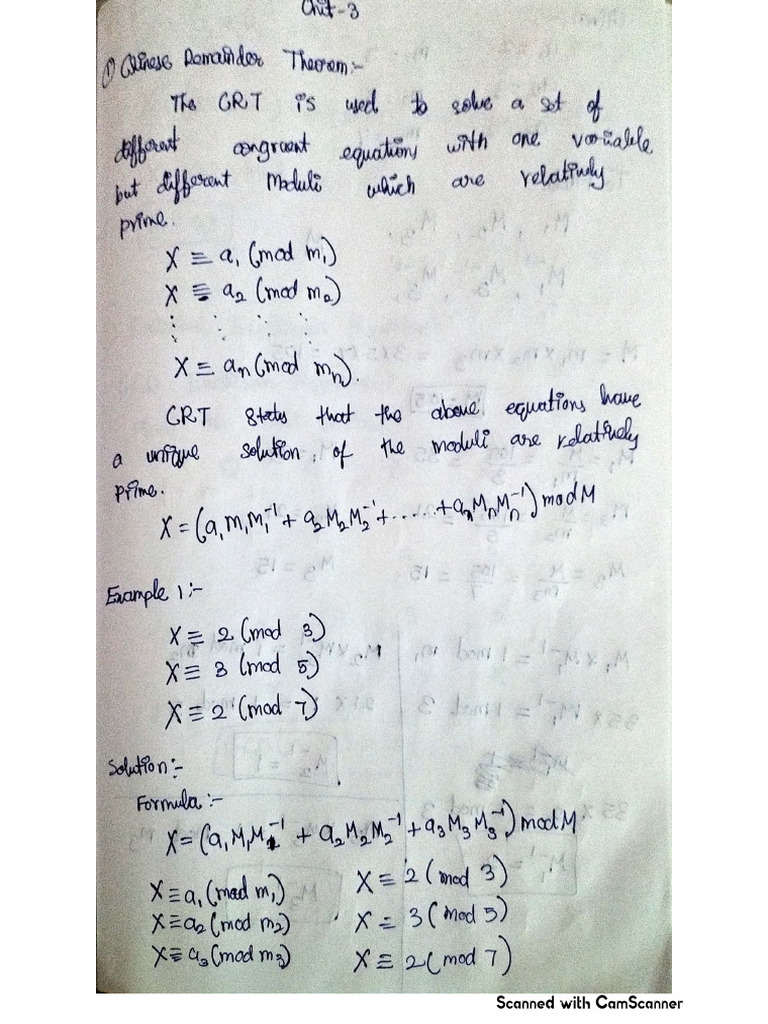 Unit-3
① Chinese Remainder Theorem:-
The CRT is used to solve a set of
different congruent equations with one variable
but different Moduli which are relatively
prime.
X ≡ a₁ (mod m₁)
X ≡ a₂ (mod m₂)
⋮ ⋮ ⋮ ⋮
X ≡ aₙ (mod mₙ).
CRT states that the above equations have
a unique solution of the moduli are relatively
prime.
X = (a₁M₁M₁⁻¹ + a₂M₂M₂⁻¹ + ...... + aₙMₙMₙ⁻¹) mod M
Example 1:-
X ≡ 2 (mod 3)
X ≡ 3 (mod 5)
X ≡ 2 (mod 7)
Solution:-
Formula:-
X = (a₁M₁M₁⁻¹ + a₂M₂M₂⁻¹ + a₃M₃M₃⁻¹) mod M
X ≡ a₁ (mod m₁) X ≡ 2 (mod 3)
X ≡ a₂ (mod m₂) X ≡ 3 (mod 5)
X ≡ a₃ (mod m₃) X ≡ 2 (mod 7)
Scanned with CamScanner